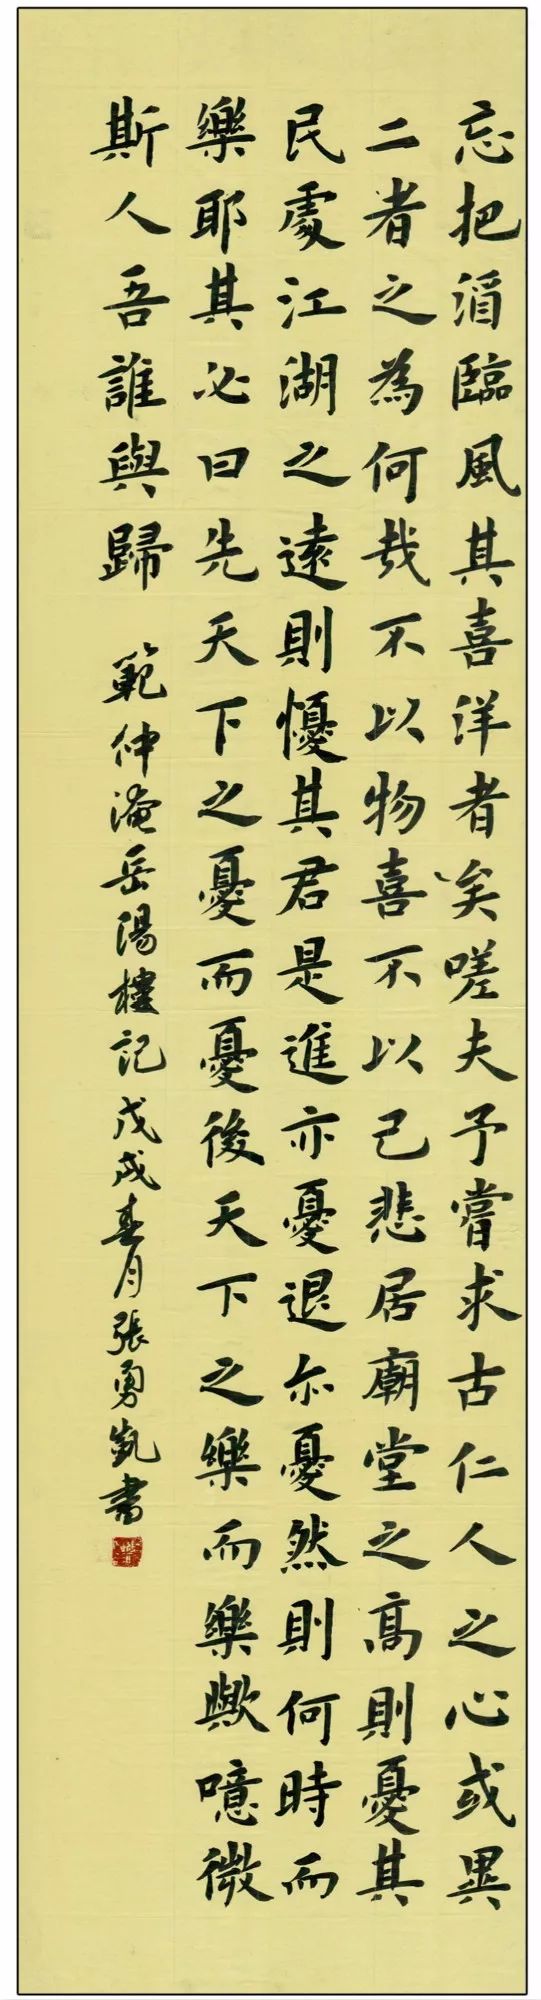 忘把酒臨風其喜洋者矣嗟夫予嘗求古仁人之心或異
二者之為何哉不以物喜不以己悲居廟堂之高則憂其
民處江湖之遠則懮其君是進亦憂退亦憂然則何時而
樂耶其必曰先天下之憂而憂後天下之樂而樂歟噫微
斯人吾誰與歸 範仲淹岳陽樓記戊戌春月張勇凱書